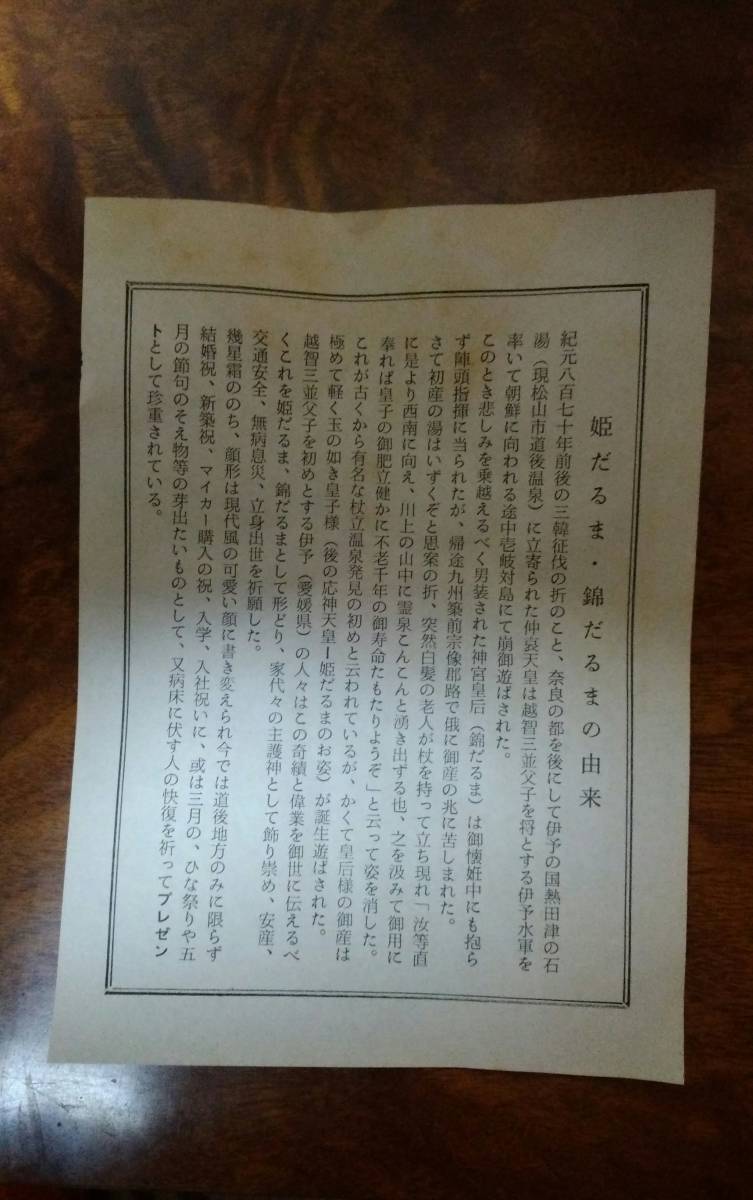 姫だるま・錦だるまの由来
紀元八百七十年前後の三韓征伐の折のこと、奈良の都を後にして伊予の国熱田津の石
湯（現松山市道後温泉）に立寄られた仲哀天皇は越智三並父子を将とする伊予水軍を
率いて朝鮮に向われる途中壱岐対島にて崩御遊ばされた。
このとき悲しみを乗越えるべく男装された神宮皇后（錦だるま）は御懐妊中にも抱ら
ず陣頭指揮に当られたが、帰途九州築前宗像郡路で俄に御産の兆に苦しまれた。
さて初産の湯はいずくぞと思案の折、突然白髪の老人が杖を持って立ち現れ「汝等直
に是より西南に向え、川上の山中に霊泉こんこんと湧き出ずる也、之を汲みて御用に
奉れば皇子の御肥立健かに不老千年の御寿命たもたりようぞ」と云って姿を消した。
これが古くから有名な杖立温泉発見の初めと云われているが、かくて皇后様の御産は
極めて軽く玉の如き皇子様（後の応神天皇ー姫だるまのお姿）が誕生遊ばされた。
越智三並父子を初めとする伊予（愛媛県）の人々はこの奇績と偉業を御世に伝えるべ
くこれを姫だるま、錦だるまとして形どり、家代々の主護神として飾り崇め、安産、
交通安全、無病息災、立身出世を祈願した。
幾星霜ののち、顔形は現代風の可愛い顔に書き変えられ今では道後地方のみに限らず
結婚祝、新築祝、マイカー購入の祝、入学、入社祝いに、或は三月の、ひな祭りや五
月の節句のそえ物等の芽出たいものとして、又病床に伏す人の快復を祈ってプレゼン
トとして珍重されている。